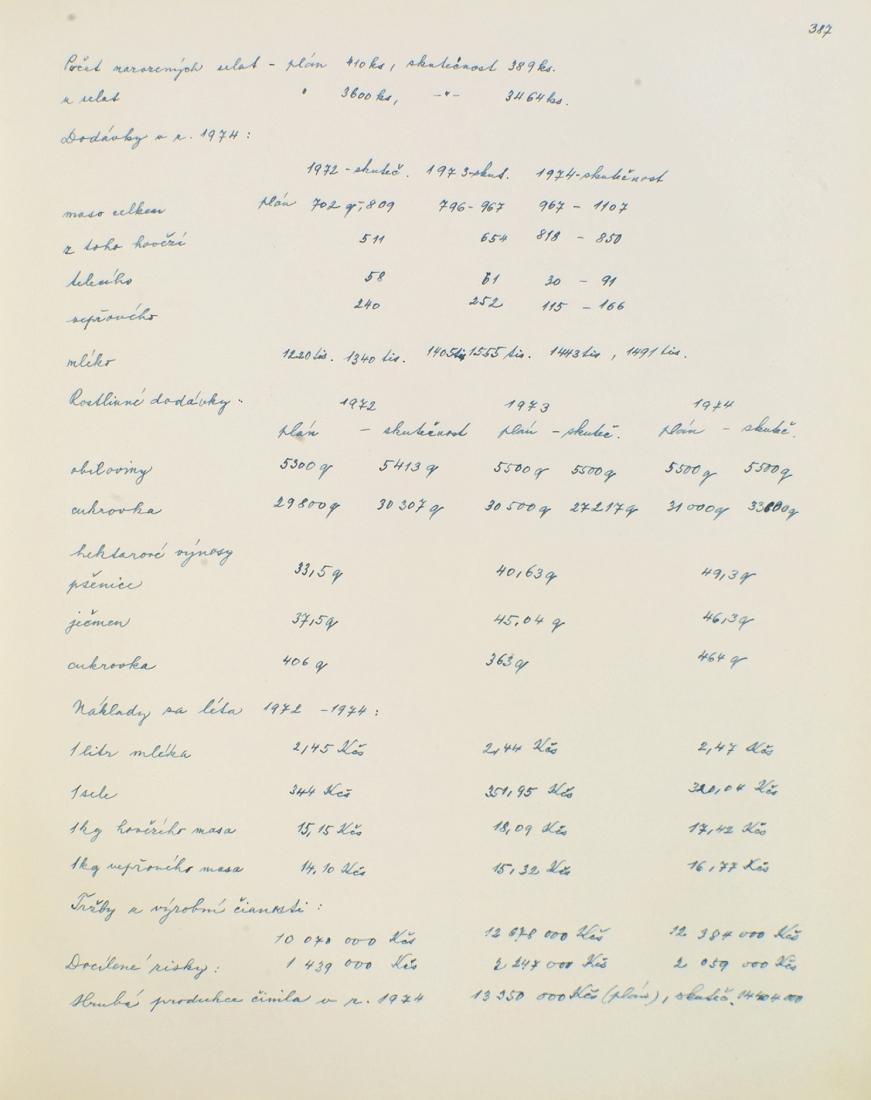 387
Počet narozených selat - plán 410 ks, skutečnost 389 ks.
selat " 3600 ks, -"- 3464 ks.
Dodávky v r. 1974:
1972 - skuteč. 1973 - skut. 1974 - skutečnost
maso celkem plán 702 q, - 809 796 - 967 967 - 1107
z toho hovězí 511 654 818 - 850
telecího 58 61 30 - 91
vepřového 240 252 115 - 166
mléko 1220 tis. 1340 tis. 1405 tis 1555 tis. 1443 tis, 1491 tis.
Rostlinné dodávky: 1972 1973 1974
plán - skutečnost plán - skuteč. plán - skuteč.
obiloviny 5300 q 5413 q 5500 q 5500 q 5500 q 5500 q
cukrovka 29800 q 30307 q 30500 q 27217 q 31000 q
hektarové výnosy
pšenice 33,5 q 40,63 q 49,3 q
ječmen 37,5 q 45,04 q 46,3 q
cukrovka 406 q 363 q 464 q
Náklady za léta 1972 - 1974:
1 litr mléka 2,45 Kčs 2,44 Kčs 2,47 Kčs
1 sele 344 Kčs 351,95 Kčs 320,04 Kčs
1 kg hovězího masa 15,15 Kčs 18,09 Kčs 17,42 Kčs
1 kg vepřového masa 14,10 Kčs 15,32 Kčs 16,77 Kčs
Tržby z výrobní činnosti:
10 070 000 Kčs 12 678 000 Kčs 12 384 000 Kčs
Docílené zisky: 1 439 000 Kčs 2 247 000 Kčs 2 059 000 Kčs
Hrubá produkce činila v r. 1974 13 350 000 Kčs (plán), skuteč. 14 404 000